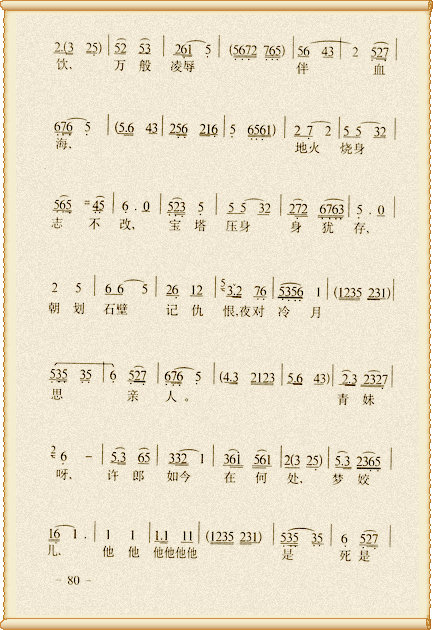 2.(3 25) | 52 53 | 261 5 | (5672 765) | 56 43 | 2 527 |
饮、 万 般 凌辱 伴 血
676 5 | (5.6 43 | 256 216 | 5 6561) | 2 7 2 | 5 5 32 |
海、 地火 烧身
565 #45 | 6 . 0 | 523 5 | 5 5 32 | 272 6763 | 5 . 0 |
志 不 改、 宝 塔 压身 身 犹 存、
2 5 | 6 6 5 | 26 12 | 3.2 76 | 5356 1 | (1235 231) |
朝 划 石壁 记 仇 恨、夜对 冷 月
535 35 | 6 527 | 676 5 | (4.3 2123 | 5.6 43) | 2.3 2327 |
思 亲 人 。 青 妹
2 6 - | 5.3 65 | 332 1 | 361 561 | 2(3 25) | 5.3 2365 |
呀、 许 郎 如今 在 何 处、 梦 姣
16 1 . | 1 1 | 1.1 11 | (1235 231) | 535 35 | 6 527 |
儿、 他 他 他他他他 是 死 是
- 80 -